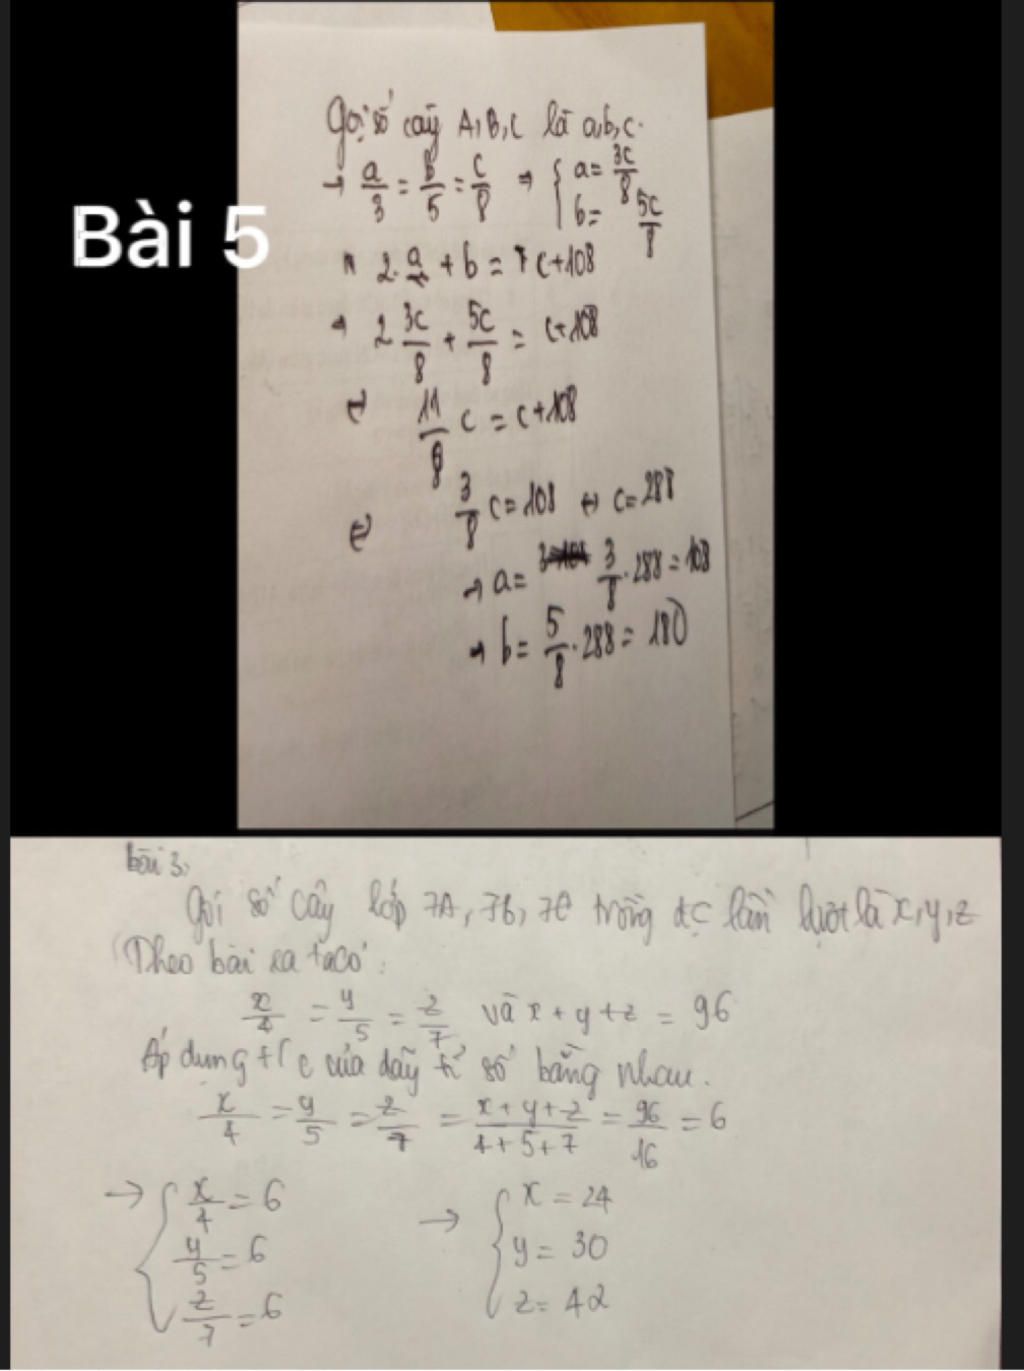 Bài 5
Gọi số cây A, B, C là a, b, c.
→ a/3 = b/5 = c/8 ⇒ { a = 3c/8
b = 5c/8
2. a + b = c + 108
2 3c/8 + 5c/8 = c + 108
⇔ 11/8 c = c + 108
⇔ 3/8 c = 108 ⇔ c = 288
→ a = 3/8 . 288 = 108
→ b = 5/8 . 288 = 180
bài 3,
Gọi số cây lớp 7A, 7B, 7C trồng đc lần lượt là x, y, z
Theo bài ra ta có :
x/4 = y/5 = z/7 và x + y + z = 96
Áp dụng t/c của dãy tỉ số bằng nhau.
x/4 = y/5 = z/7 = x + y + z/4 + 5 + 7 = 96/16 = 6
→ { x/4 = 6 → { x = 24
y/5 = 6 y = 30
z/7 = 6 z = 42